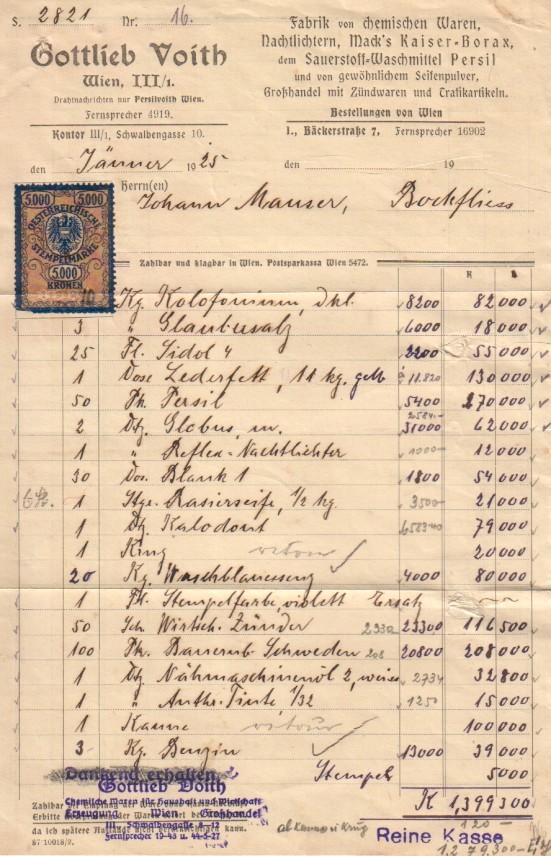 S. 2821 Nr. 16.
Gottlieb Voith
Wien, III/1.
Drahtnachrichten nur Persilvoith Wien.
Fernsprecher 4919.
Kontor III/1, Schwalbengasse 10.
Fabrik von chemischen Waren,
Nachtlichtern, Mack's Kaiser-Borax,
dem Sauerstoff-Waschmittel Persil
und von gewöhnlichem Seifenpulver,
Großhandel mit Zündwaren und Trafikartikeln.
Bestellungen von Wien
I., Bäckerstraße 7, Fernsprecher 16902
den Jänner 1925 den 19
Herrn(en)
Johann Mauser, Bockfliess
5.000 5.000
OESTERREICHISCHE
STEMPELMARKE
5.000
KRONEN
Zahlbar und klagbar in Wien. Postsparkassa Wien 5472.
K
10 Kg. Kolofonium, dkl. 8200 82000
3 " Glaubersalz 6000 18000
25 Fl. Sidol 4 2200 55000
1 Dose Lederfett, 11 kg. gelb à 11.820 130000
50 Pk. Persil 5400 270000
2 Dtz. Globus, m. 31000 62000
1 " Reflex-Nachtlichter 1000 12000
30 Dos. Blank 1 1800 54000
1 Stge. Rasierseife, 1/2 kg. 3500 21000
1 Dtz. Kalodont 79000
1 Krug retour 20000
20 Kg. 4000 80000
1 Fl. Stempelfarbe, violett Ersatz
50 Sch. Wirtsch. Zünder 2330 23300 116500
100 Pk. Schweden 208 20800 208000
1 Dtz. Nähmaschinenöl 2, weiss 2734 32800
1 " Anthr. Tinte 1/32 1250 15000
1 Kanne retour 100000
3 Kg. Benzin 13000 39000
Stempel 5000
K 1,399300
Dankend erhalten
Gottlieb Voith
Chemische Waren für Haushalt und Wirtschaft
Erzeugung Wien Großhandel
III., Schwalbengasse 8-12
Fernsprecher 19-43 u. 44-5-27
Zahlbar bei Empfang der Ware
Erbitte
da ich spätere kann.
87 10018/2
ab Kanne u. Krug 120-
Reine Kasse
1,279,300-